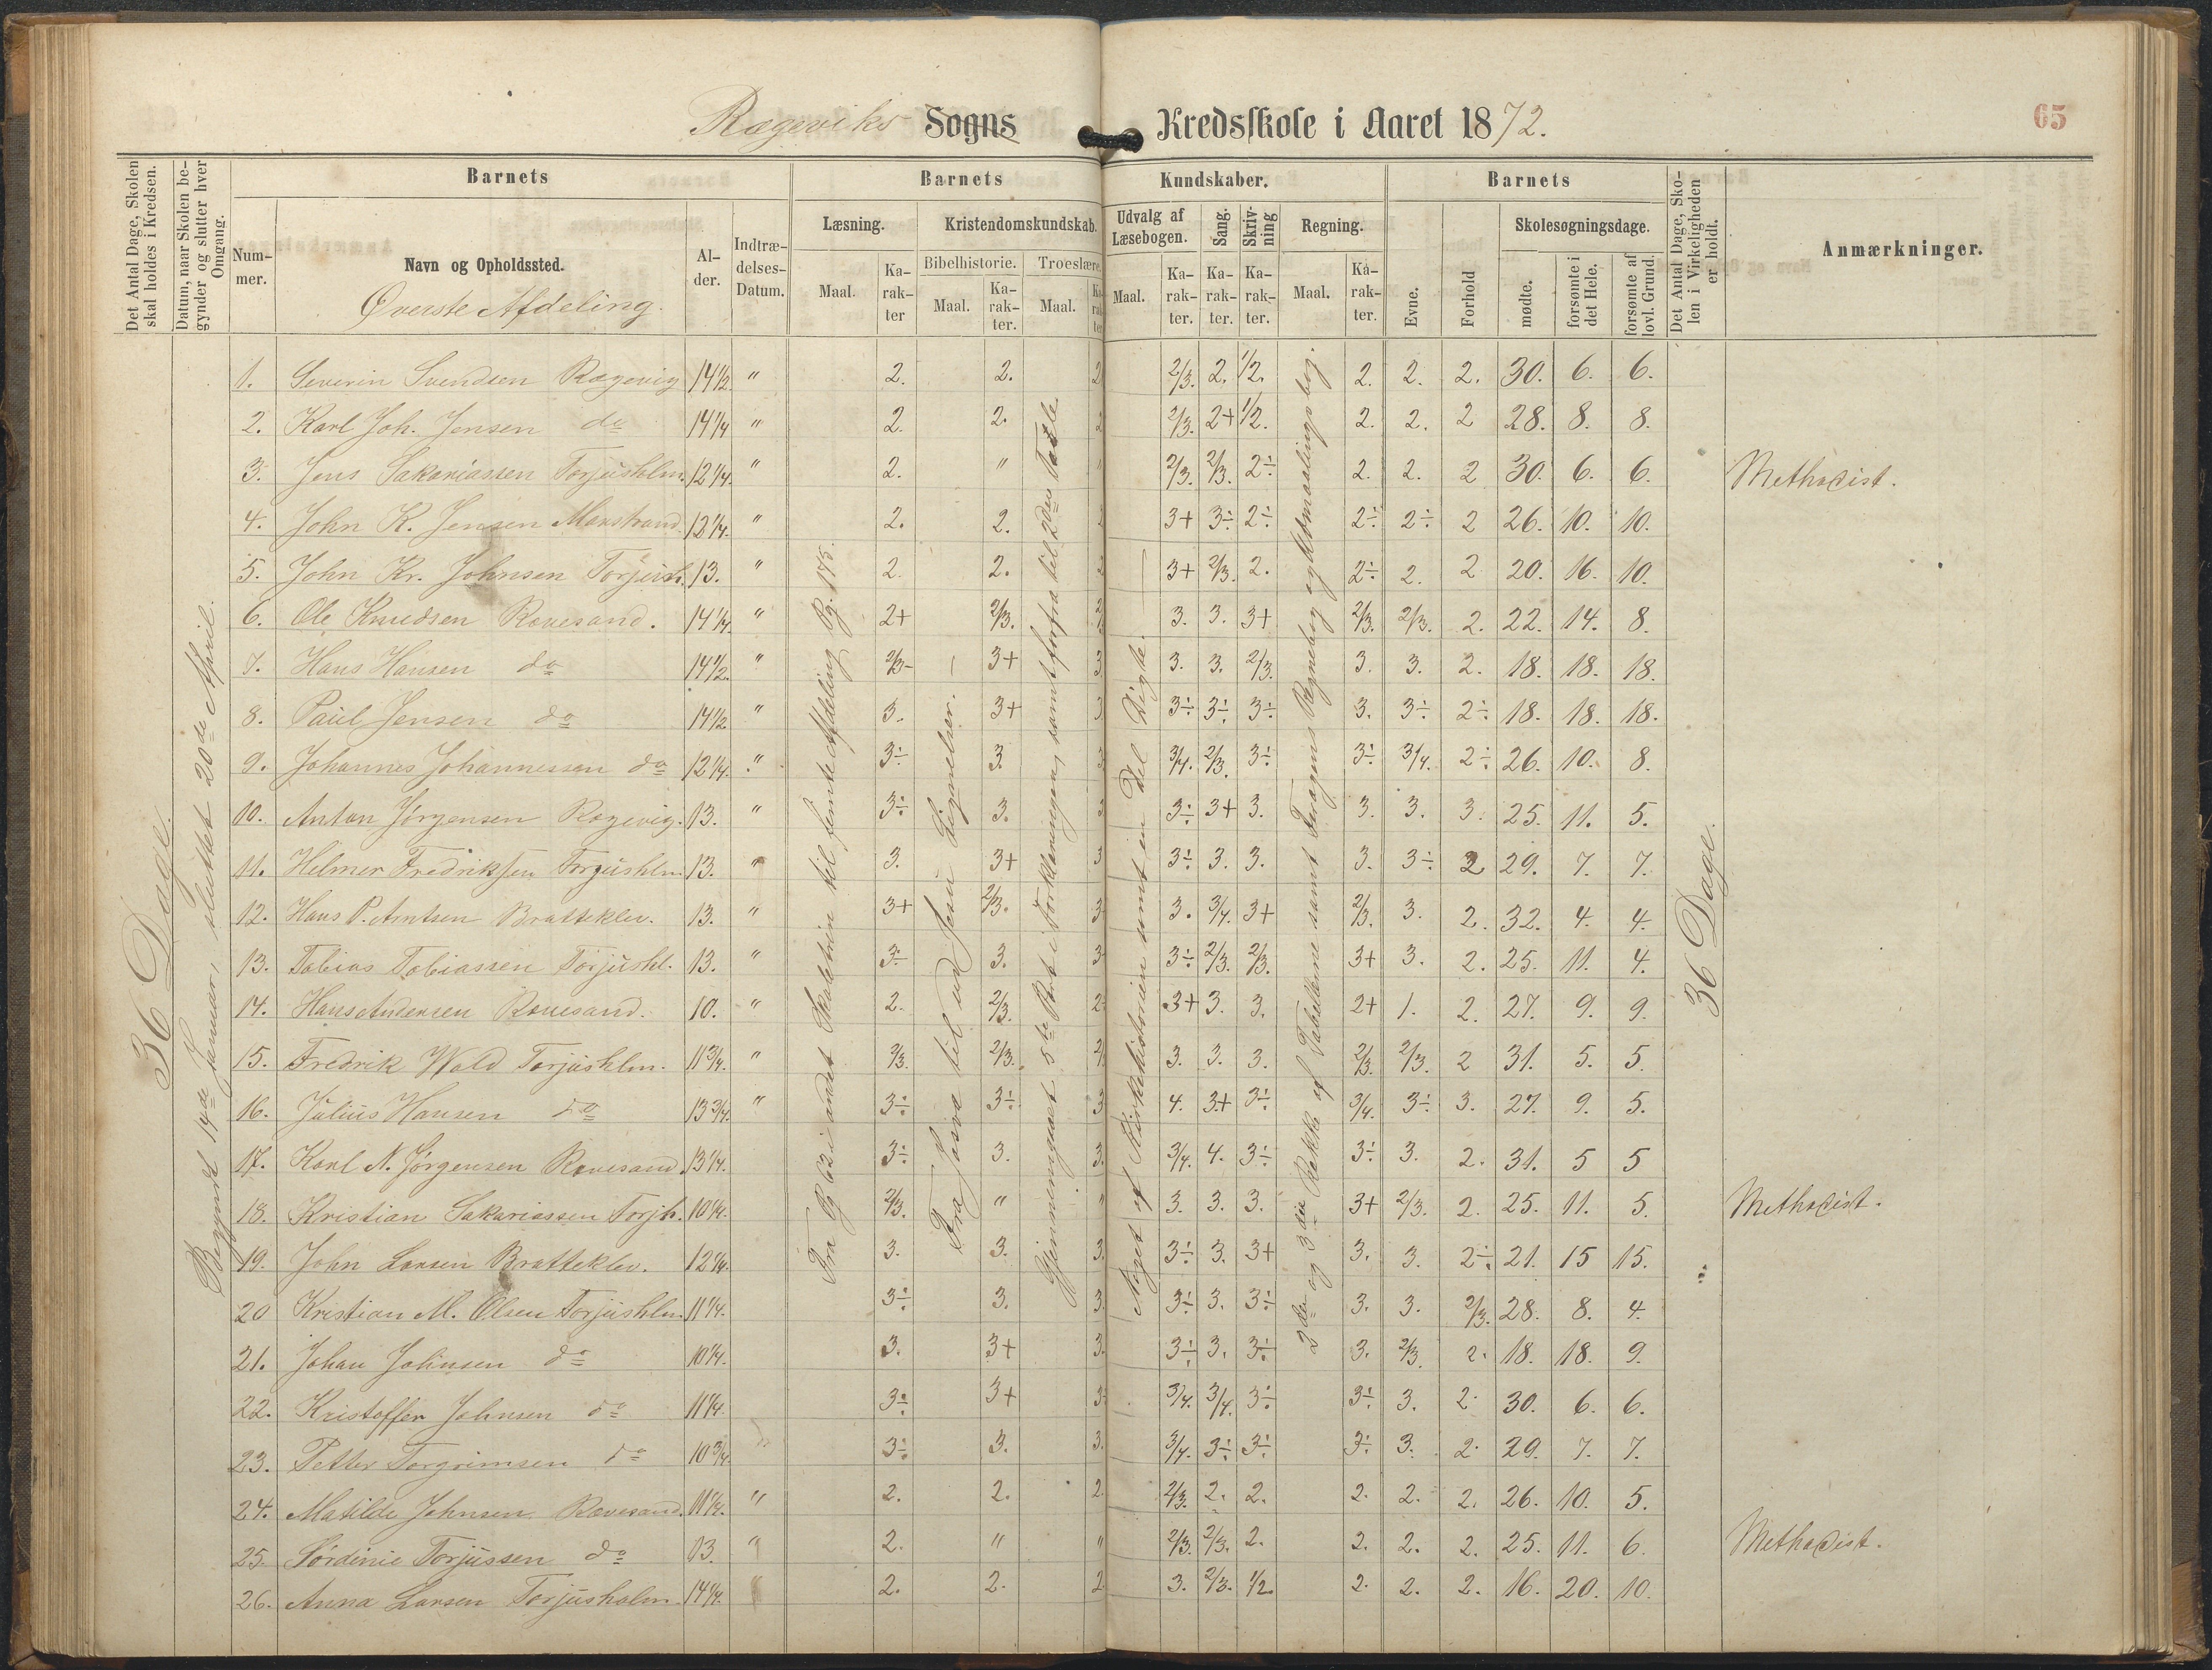 Rægeviks Sogns Kredsskole i Aaret 1872.
65
Det Antal Dage, Skolen skal holdes i Kredsen.
Datum, naar Skolen begynder og slutter hver Omgang.
Barnets
Nummer.
Navn og Opholdssted.
Øverste Afdeling.
Alder.
Indtrædelses-Datum.
Barnets Kundskaber.
Læsning.
Maal.
Karakter
Kristendomskundskab.
Bibelhistorie.
Maal.
Karakter.
Troeslære.
Maal.
Karakter
Udvalg af Læsebogen.
Maal.
Karakter.
Sang.
Karakter.
Skrivning
Karakter.
Regning.
Maal.
Karakter.
Barnets
Evne.
Forhold
Skolesøgningsdage.
mødte.
forsømte i det Hele.
forsømte af lovl. Grund.
Det Antal Dage, Skolen i Virkeligheden er holdt.
Anmærkninger.
36 Dage.
Begyndt 14de Januar, sluttet 20de April.
Fra Pg 62 i andet Skoletrin til femte Afdeling Pg. 175.
Fra Josva til ud Jesu Lignelser.
Gjennemgaaet 5te Part i Forklaringen, samt forfra til 2den Tavle
Noget af Kirkehistorien samt en Del Digte.
2den og 3die Række af Tabellerne samt Fragens Regnebog og Udmaalingsbog.
36 Dage.
1. Severin Svendsen Rægevig 14 1/2. " 2. 2. 2 2/3. 2. 1/2. 2. 2. 2. 30. 6. 6.
2. Karl Joh. Jensen do 14 1/4 " 2. 2. 2 2/3. 2+ 1/2. 2. 2. 2 28. 8. 8.
3. Jens Sakariassen Torjusholm. 12 1/4. " 2. " " 2/3. 2/3. 2÷ 2. 2. 2 30. 6. 6. Methodist.
4. John K. Jensen Marstrand 12 1/4. " 2. 2. 2 3+ 3÷ 2÷ 2÷ 2÷ 2 26. 10. 10.
5. John Kr. Johnsen Torjush. 13. " 2. 2. 2 3+ 2/3. 2. 2÷ 2. 2 20. 16. 10.
6. Ole Knudsen Rævesand. 14 1/4. " 2+ 2/3. 3. 3. 3+ 2/3. 2/3. 2. 22. 14. 8.
7. Hans Hansen do 14 1/2. " 2/3- 3+ 3. 3. 3. 2/3. 3. 3. 2. 18. 18. 18.
8. Paul Jensen do 14 1/2 " 3. 3+ 3. 3÷ 3÷ 3÷ 3. 3÷ 2÷ 18. 18. 18.
9. Johannes Johannessen do 12 1/4. " 3÷ 3. 3. 3/4. 2/3. 3÷ 3÷ 3/4. 2÷ 26. 10. 8.
10. Anton Jørgensen Rægevig. 13. " 3÷ 3. 3 3÷ 3+ 3. 3. 3. 3. 25. 11. 5.
11. Helmer Fredriksen Torjushlm 13. " 3. 3+ 3 3÷ 3. 3. 3. 3÷ 2 29. 7. 7.
12. Hans P. Arntsen Bratteklev. 13. " 3+ 2/3. 3 3. 3/4. 3+ 2/3. 3. 2. 32. 4. 4.
13. Tobias Tobiassen Torjushl. 13. " 3÷ 3. 3 3÷ 2/3. 2/3. 3+ 3. 2. 25. 11. 4.
14. Hans Andersen Rævesand. 10. " 2. 2/3. 2 3+ 3. 3. 2+ 1. 2. 27. 9. 9.
15. Fredrik Wold Torjushlm. 11 3/4. " 2/3. 2/3. 3. 3. 3. 2/3. 2/3. 2 31. 5. 5.
16. Julius Hansen do 13 3/4. " 3÷ 3÷ 3 4. 3+ 3÷ 3/4. 3÷ 3. 27. 9. 5.
17. Karl N. Jørgensen Rævesand 13 1/4. 3÷ 3. 3. 3/4. 4. 3÷ 3÷ 3. 2. 31. 5 5
18. Kristian Sakariassen Torjh. 10 1/4. 2/3. " " 3. 3. 3. 3+ 2/3. 2. 25. 11. 5. Methodist.
19. John Larsen Bratteklev. 12 1/4. 3. 3. 3. 3÷ 3. 3+ 3. 3. 2÷ 21. 15 15.
20 Kristian M. Olsen Torjushlm. 11 1/4. 3÷ 3. 3. 3÷ 3. 3÷ 3. 3. 2/3. 28. 8. 4.
21. Johan Johnsen do 10 1/4. 3. 3+ 3. 3÷ 3. 3÷ 3. 2/3. 2. 18. 18. 9.
22. Kristoffer Johnsen do 11 1/4. 3÷ 3+ 3÷ 3/4. 3/4. 3÷ 3÷ 3. 2. 30. 6. 6.
23. Petter Torgrimsen do 10 3/4. " 3÷ 3. 3. 3/4. 3÷ 3÷ 3÷ 3. 2. 29. 7. 7.
24. Matilde Johnsen Rævesand. 11 1/4. " 2. 2. 2. 2/3. 2. 2. 2. 2. 2. 26. 10. 5.
25. Sørdinie Torjussen do 13. " 2. " " 2/3. 2/3. 2. 2. 2. 2. 25. 11. 6. Methodist.
26. Anna Larsen Torjusholm. 14 1/4. " 2. 2. 2. 3. 2/3. 1/2. 2. 2. 2. 16. 20. 10.